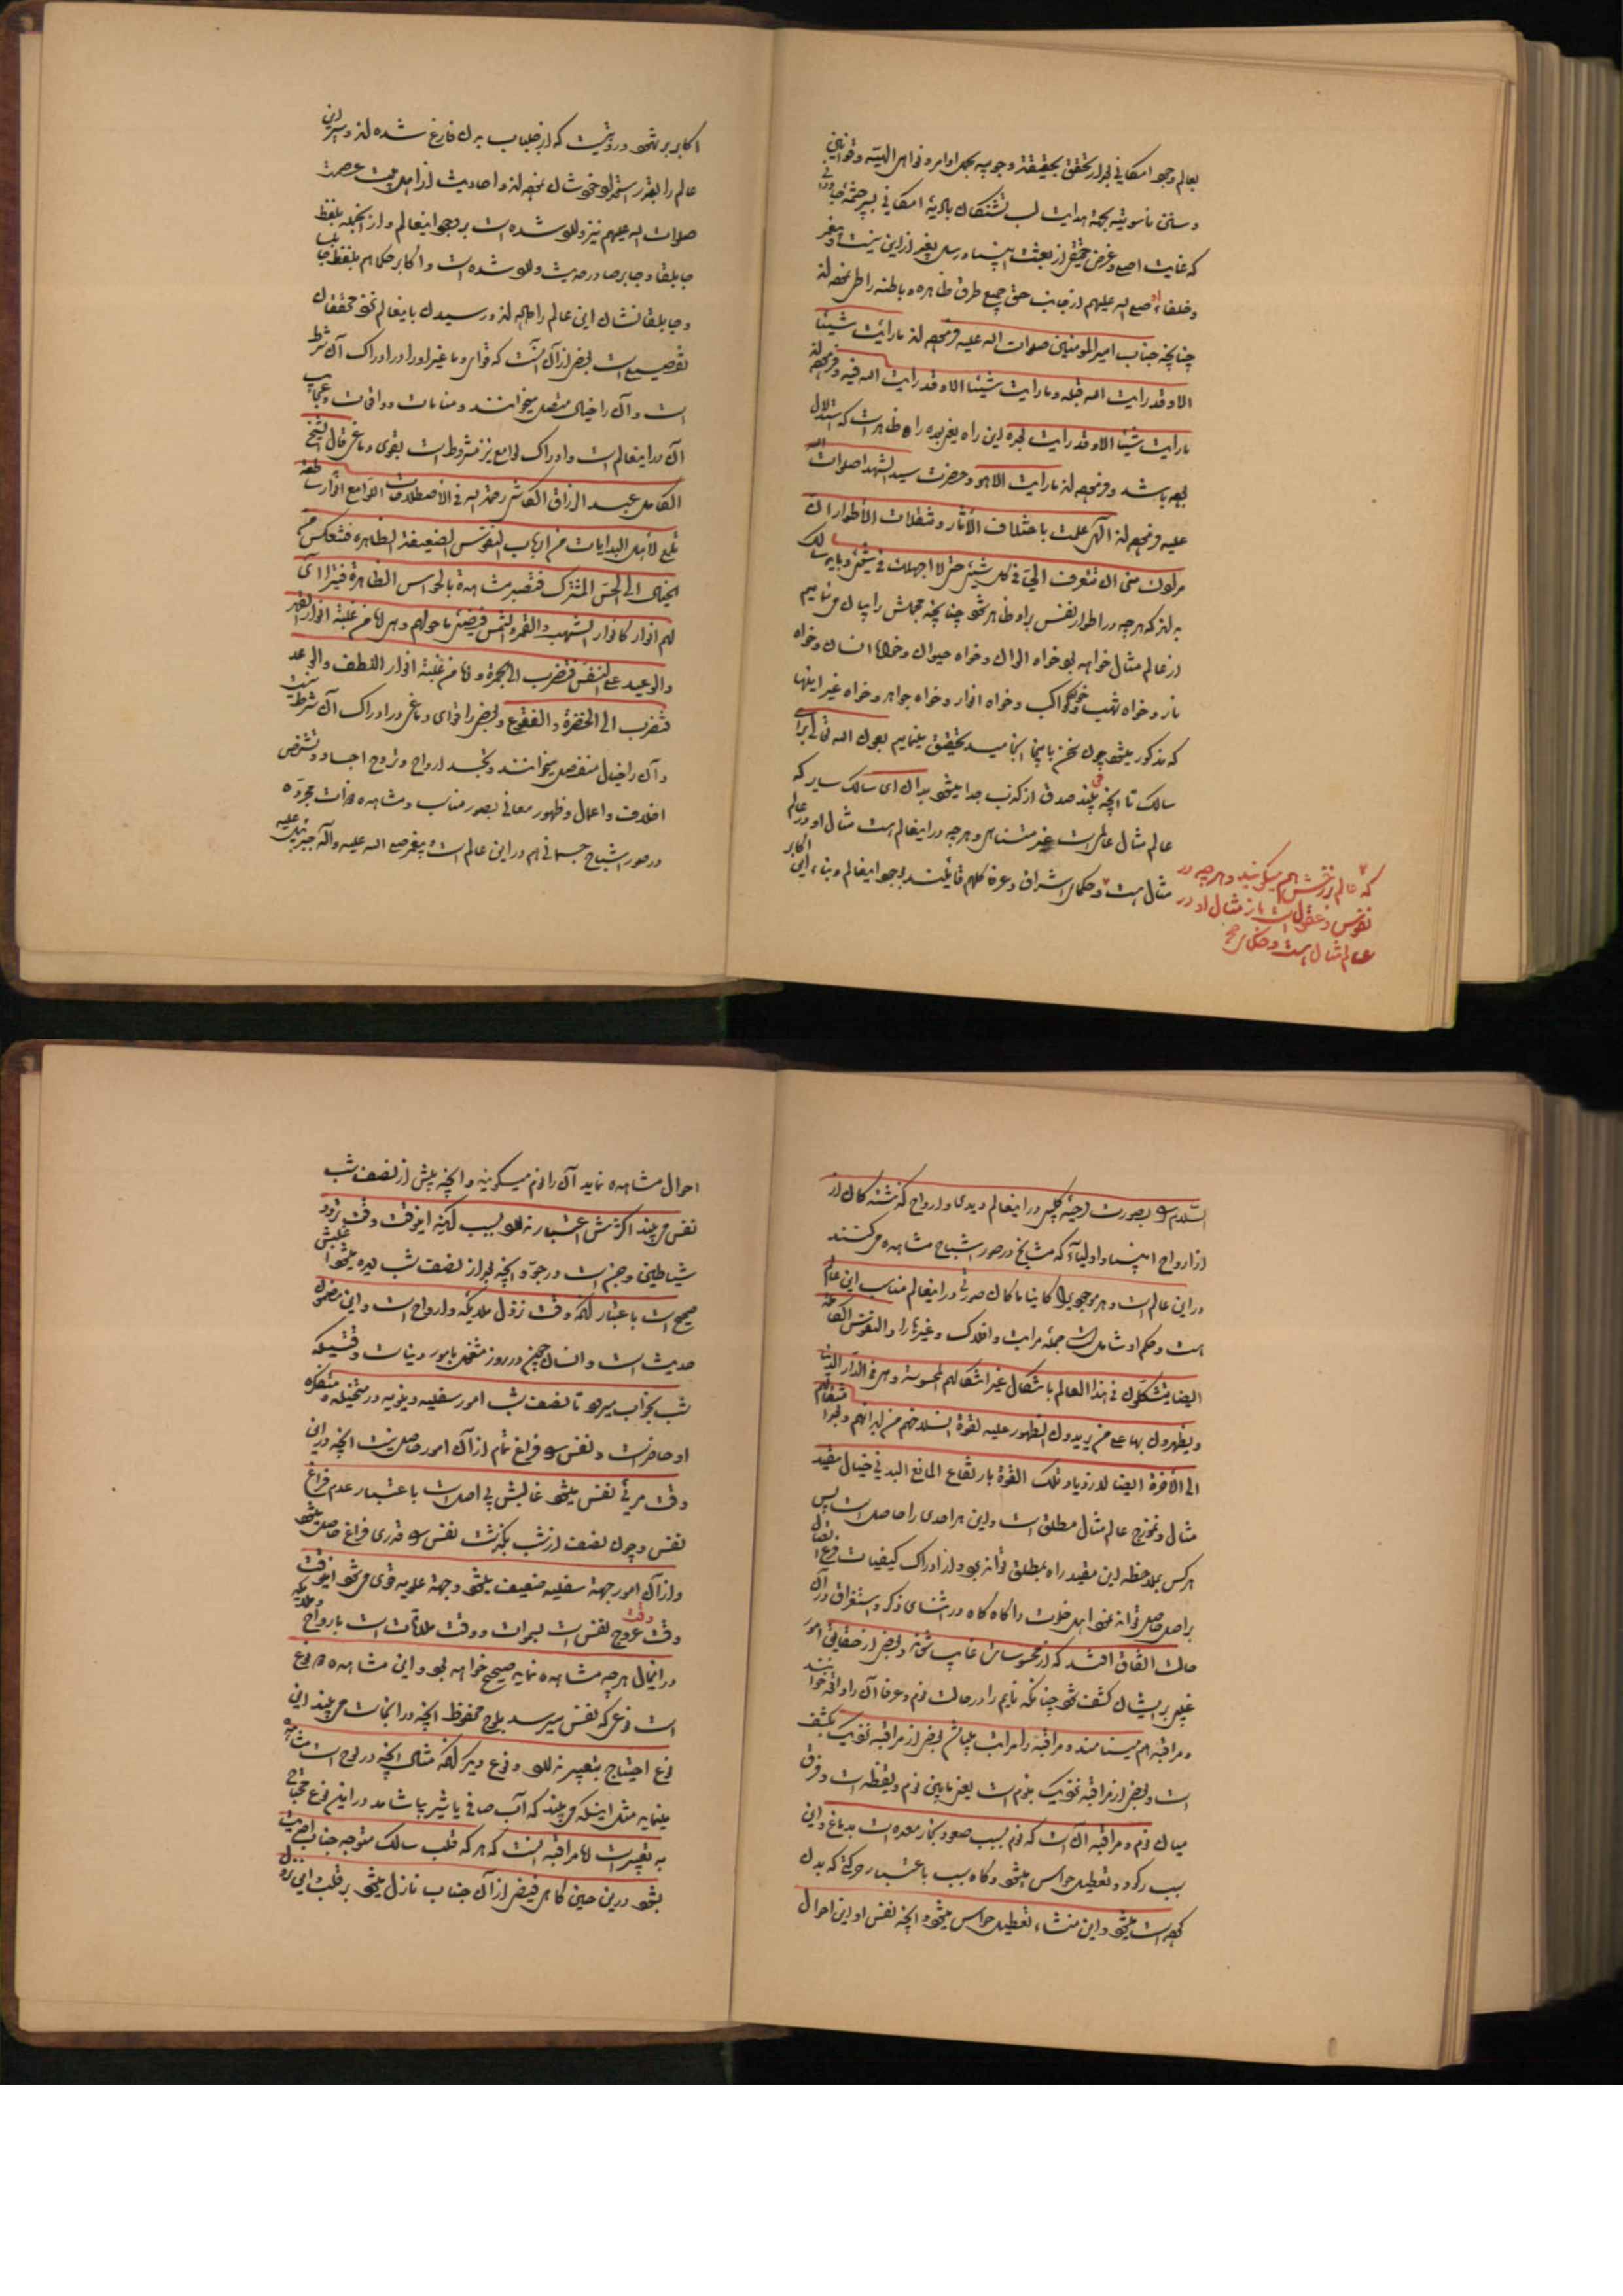 بعالم وجود امکانی بعد از تحقق بحقیقة وجوبیه بجهل اوامر و نواهی الهیه و قوانین
و سنن ناموسیه بجهة هدایت لب تشنکان بادیهٔ امکانی بسر چشمهٔ
که غایت اصلی و غرض حقیقی از بعثت انبیا و رسل بغیر از این نیست و پیغمبر
و خلفاء او صلی الله علیهم از جانب حق جمیع طرق ظاهره و باطنه را طی نموده‌اند
چنانچه جناب امیر المومنین صلوات الله علیه فرموده‌اند ما رایت شیئا
الا و قد رایت الله قبله و ما رایت شیئا الا و قد رایت الله فیه و فرموده‌اند
ما رایت شیئا الا و قد رایت بعده این راه یعنی بعده راه ظاهر است که استدلال
بوده باشد و فرموده‌اند ما رایت الا هو و حضرت سید الشهدا صلوات الله
علیه فرموده‌اند الهی علمت باختلاف الآثار و تنقلات الأطوار ان
مرادک منی ان تتعرف الیّ فی کل شیئی حتی لا اجهلک فی شیئی و باید سالک
بداند که هرچه در اطوار نفس بر او ظاهر شود چنانچه مجملش را بیان می‌نمایم
از عالم مثال خواهد بود خواه الوان و خواه حیوان و خواه انسان و خواه
نار و خواه شهب و خواه کواکب و خواه انوار و خواه جواهر و خواه غیر اینها
که مذکور میشود چون سخن باینجا انجامید تحقیق مینمایم بعون الله تعالی برای
سالک تا آنچه می بیند صدق از کذب جدا میشود بدان ای سالک سایر که
عالم مثال عالمی است غیر متناهی و هرچه در اینعالم هست مثال او در عالم
مثال هست و حکمای اشراق و عرفا کلهم قایلند بوجود اینعالم و بناء این اکابر
که عالم برزخش هم میگویند و هرچه در
نفوس و عقول است باز مثال او در
عالم مثال هست و حکمای صح
اکابر بر شهود و رؤیت که از جلباب بدن فارغ شده‌اند و سیر این
عالم را بقدر استعداد خودشان نموده‌اند و احادیث از اهل بیت عصمت
صلوات الله علیهم نیز وارد شده است بر وجود اینعالم و از آنجمله بلفظ
جابلقا و جابرصا در حدیث وارد شده است و اکابر حکما هم بلفظ جابلسا
و جابلقا نشان این عالم را داده‌اند و رسیدن باینعالم نزد محققان
تفصیلی است بعضی از آن آنست که قوای دماغیه او را در ادراک آن شرط
است و آن را خیال متصل میخوانند و منامات و واقعات و عجایب
آن در اینعالم است و ادراک لوامع نیز مشروط است بقوی دماغی قال الشیخ
الکامل عبد الرزاق الکاشی رحمة الله فی الأصطلاحات اللوامع انوار ساطعة
تلمع لأهل البدایات من ارباب النفوس الضعیفة الظاهره فتنعکس من
الخیال الی الحسّ المشترک فتصیر مشاهدة بالحواس الظاهرة فیترا ای
لهم انوار کانوار الشهب والقمر والشمس فیضئ ما حولهم وهی اما من غلبة انوار القهر
والوعید علی النفس فتضرب الی الحمرة و اما من غلبة انوار اللطف والوعد
فتضرب الی الخضرة والفقوع و بعضی را قوای دماغی در ادراک آن شرط نیست
و آن را خیال منفصل میخوانند و تجسد ارواح و تروح اجساد و تشخص
اخلاق و اعمال و ظهور معانی بصور مناسب و مشاهده ذوات مجرده
در صور اشباح جسمانی هم در این عالم است و پیغمبر صلی الله علیه وآله جبرئیل علیه
السّلام را بصورت دحیه کلبی در اینعالم دیدی و ارواح گذشتکان از
از ارواح انبیا و اولیاء که مشایخ در صور اشباح مشاهده می‌کنند
در این عالم است و هر موجودی را کاینا ما کان صورتی در اینعالم مناسب این عالم
هست و حکم او شامل است جمله مراتب و افلاک و غیرها را و النفوس الکاملة
ایضا یتشکلون فی هذا العالم باشکال غیر اشکالهم المحسوسة وهی فی الدّار الدنیا
و یظهرون بها علی من یریدون الظهور علیه لقوة انسلاخهم من ابدانهم و بعد انتقالهم
الی الآخرة ایضا لازدیاد تلک القوة بارتفاع المانع البدنی خیال مقید
مثال و نموذج عالم مثال مطلق است و این هر احدی را حاصل است پس
هرکس بملاحظه این مقید راه بمطلق تواند برد و از ادراک کیفیات فرع اتصال
بر اصل حاصل تواند نمود اهل خلوت را گاه گاه در اثنای ذکر و استغراق در آن
حالت اتفاق افتد که از محسوسات غایب شوند و بعضی از حقایق امور
غیبی بر ایشان کشف شود چنانکه نایم را در حالت نوم و عرفا آن را واقعه خوانند
و مراقبه هم مینامند و مراقبه را مراتب بسیار است بعضی از مراقبه نزدیک بکشف
است و بعضی از مراقبه نزدیک بنوم است یعنی مابین نوم و یقظه است و فرق
میان نوم و مراقبه آن است که نوم بسبب صعود بخار معده است بدماغ و این
سبب رکود و تعطیل حواس میشود و گاه سبب باعتبار حرکة که بدن
کرده است میشود و این منشاء تعطیل حواس میشود و آنچه نفس او این احوال
احوال مشاهده نماید آن را نوم میگویند و آنچه پیش از نصف شب
نفس می بیند اکثرش اعتبار ندارد بسبب آنکه اینوقت وقت تردد
شیاطین و جن است در جوّ و آنچه بعد از نصف شب دیده میشود اغلبش
صحیح است باعتبار آنکه وقت نزول ملایکه و ارواح است و این مضمون
حدیث است و انسان چون در روز مشغول بامور دنیاست وقتیکه
شب بخواب میرود تا نصف شب امور سفلیه دنیویه در متخیله و متفکره
او حاضر است و نفس را فراغ تمام از آن امور حاصل نیست آنچه در این
وقت مرئی نفس میشود غالبش بی اصل است باعتبار عدم فراغ
نفس و چون نصف از شب بگذشت نفس را قدری فراغ حاصل میشود
و از آن امور جهة سفلیه ضعیف میشود و جهة علویه قوی می‌شود اینوقت
وقت عروج نفس است بسموات و وقت ملاقات است بارواح و ملایکه
در اینحال هرچه مشاهده نماید صحیح خواهد بود و این مشاهده دو نوع
است نوعی که نفس میرسد بلوح محفوظ آنچه در آنجاست می بیند این
نوع احتیاج بتعبیر ندارد و نوع دیگر آنکه مثال آنچه در لوح است مشاهده
مینماید مثل اینکه می بیند که آب صافی یا شیر بیاشامد در این نوع محتاج
به تعبیر است اما مراقبه آنست که هرگه قلب سالک متوجه جناب احدیت
بشود درین حین گاهی فیضی از آن جناب نازل میشود بر قلب این نزول